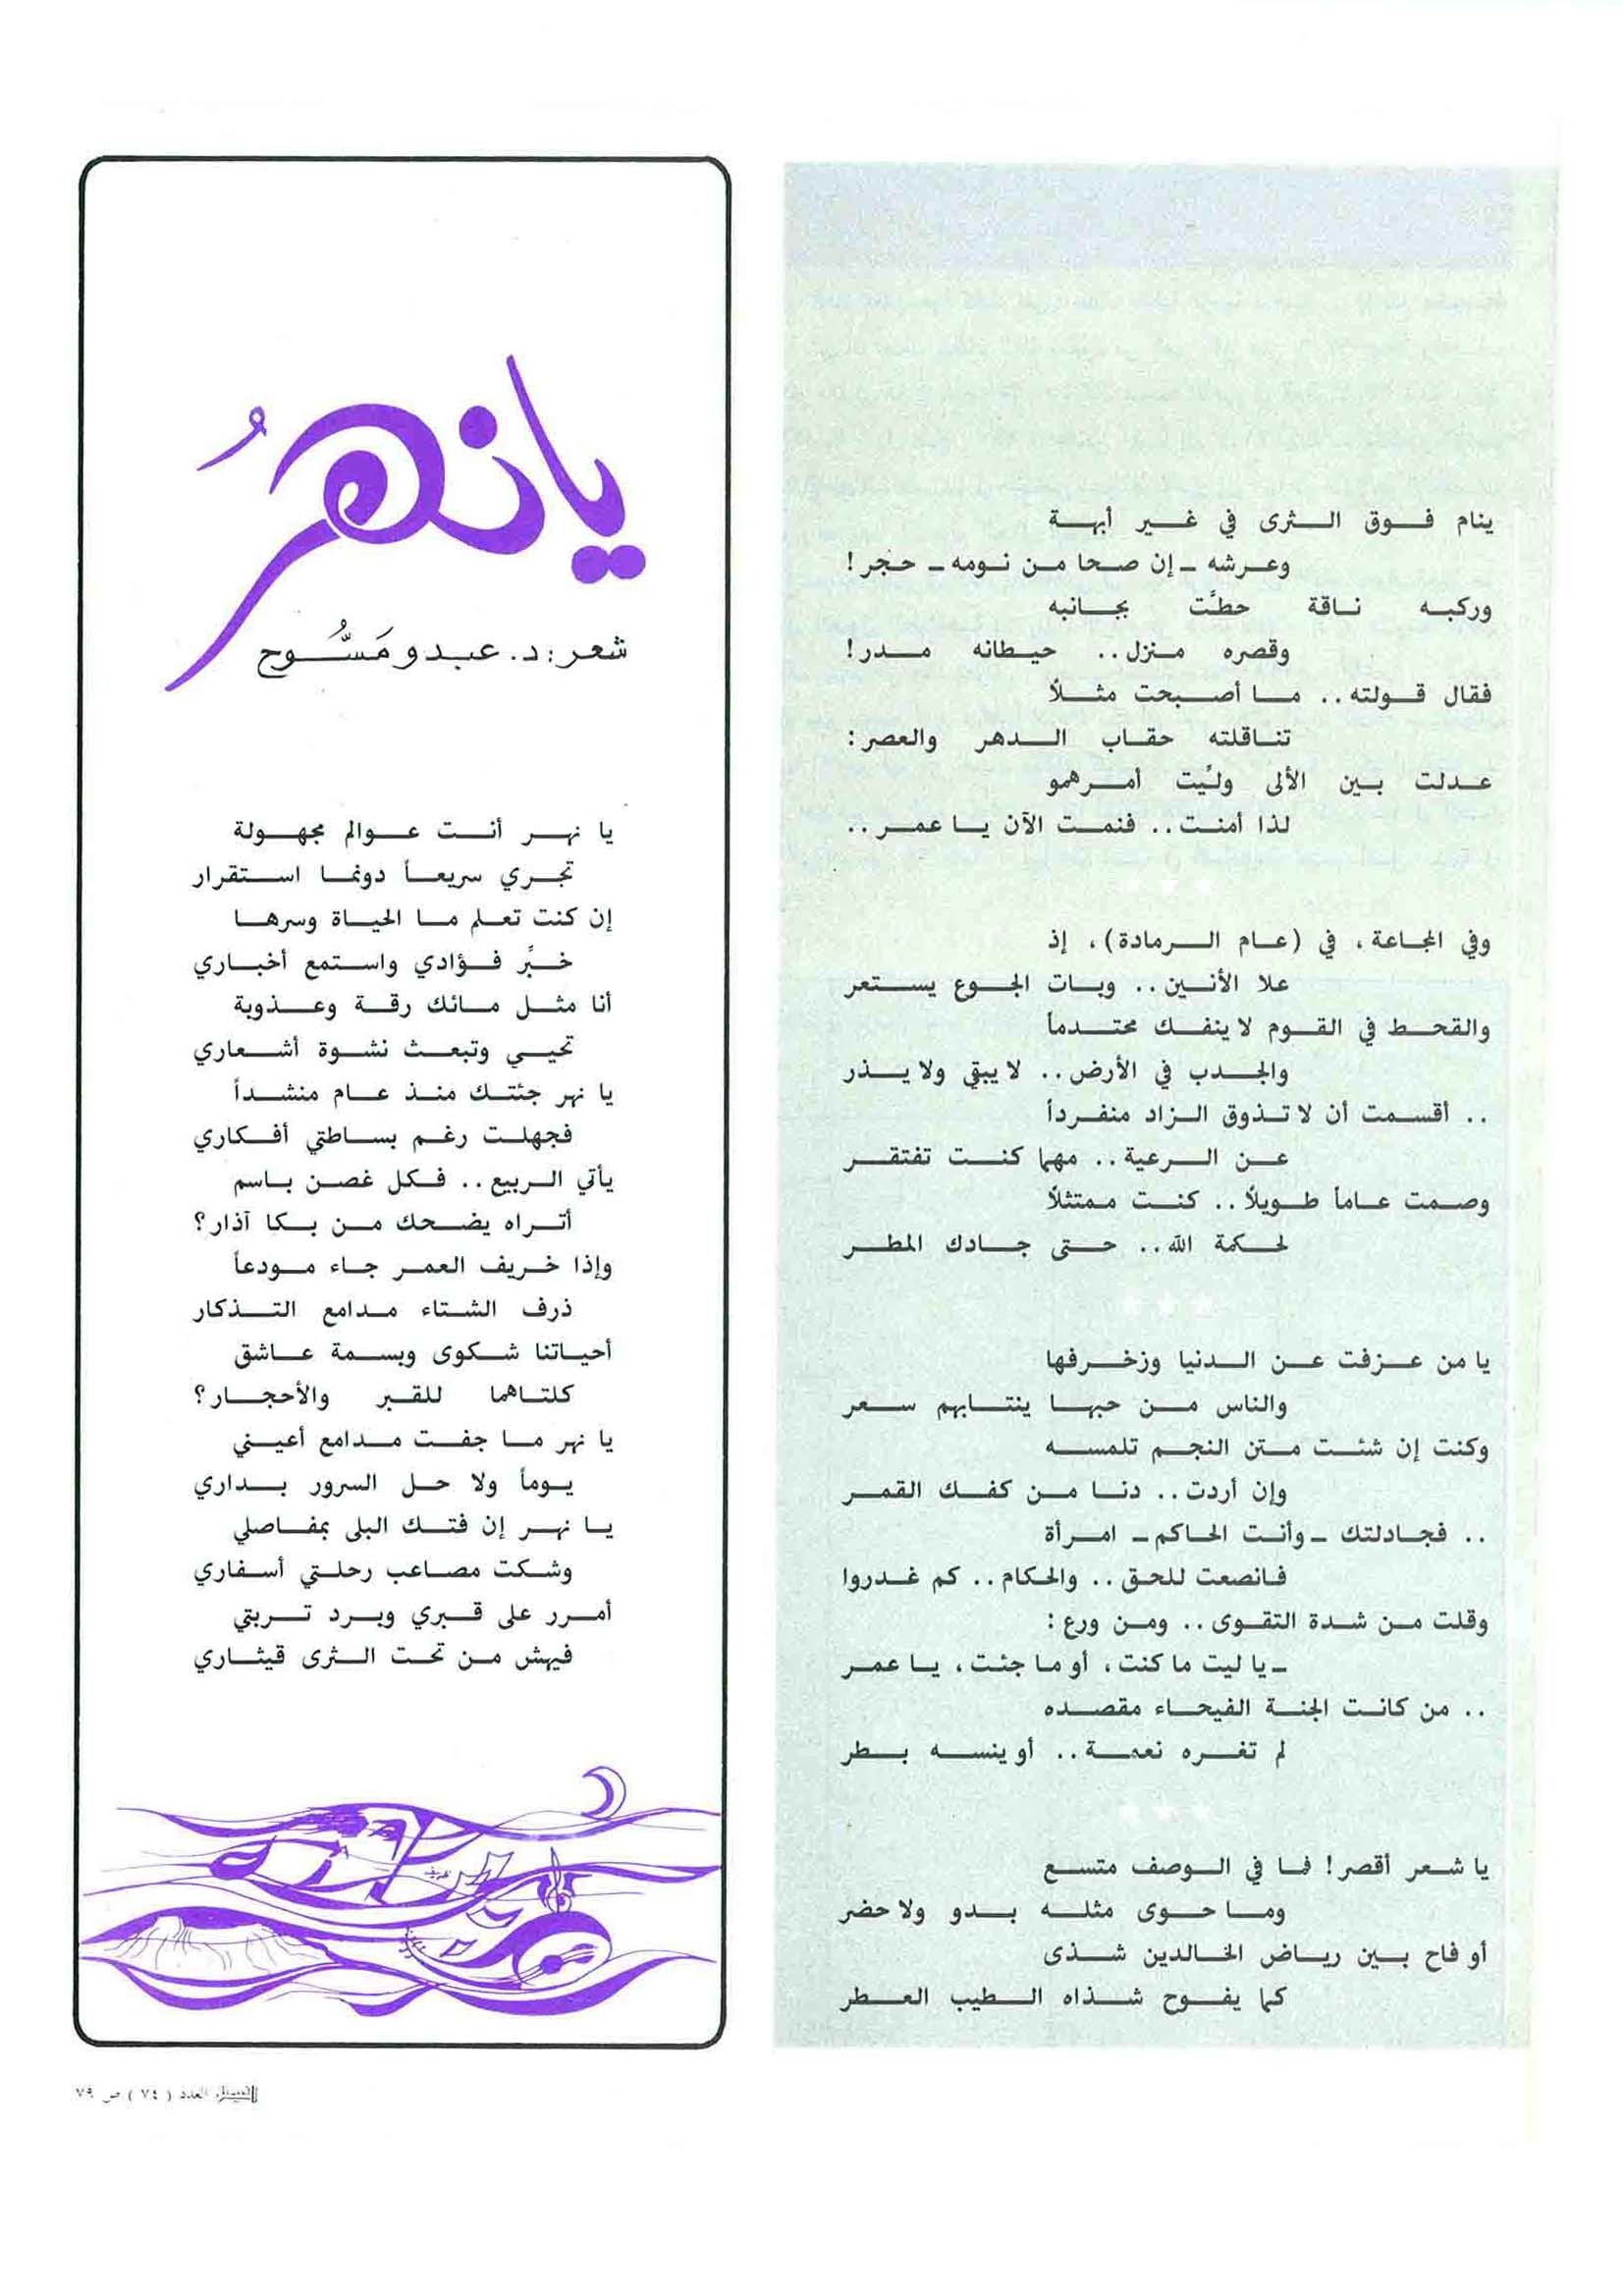 ينام فوق الثرى في غير أبهة
وعرشه - إن صحا من نومه - حجر !
وركبه ناقة حطَّت بجانبه
وقصره منزل .. حيطانه مدر !
فقال قولته .. ما أصبحت مثلاً
تناقلته حقاب الدهر والعصر :
عدلت بين الألى وليِّت أمرهمو
لذا أمنت .. فنمت الآن يا عمر ..
* * *
وفي المجاعة ، في (عام الرمادة) ، إذ
علا الأنين .. وبات الجوع يستعر
والقحط في القوم لا ينفك محتدماً
والجدب في الأرض .. لا يبقي ولا يذر
.. أقسمت أن لا تذوق الزاد منفرداً
عن الرعية .. مهما كنت تفتقر
وصمت عاماً طويلاً .. كنت ممتثلاً
لحكمة الله .. حتى جادك المطر
* * *
يا من عزفت عن الدنيا وزخرفها
والناس من حبها ينتابهم سعر
وكنت إن شئت متن النجم تلمسه
وإن أردت .. دنا من كفك القمر
.. فجادلتك - وأنت الحاكم - امرأة
فانصعت للحق .. والحكام .. كم غدروا
وقلت من شدة التقوى .. ومن ورع :
- يا ليت ما كنت ، أو ما جئت ، يا عمر
.. من كانت الجنة الفيحاء مقصده
لم تغره نعمة .. أو ينسه بطر
* * *
يا شعر أقصر ! فما في الوصف متسع
وما حوى مثله بدو ولا حضر
أو فاح بين رياض الخالدين شذى
كما يفوح شذاه الطيب العطر
يا نهرُ
شعر : د. عبدو مَسُّوح
يا نهر أنت عوالم مجهولة
تجري سريعاً دونما استقرار
إن كنت تعلم ما الحياة وسرها
خبِّر فؤادي واستمع أخباري
أنا مثل مائك رقة وعذوبة
تحيي وتبعث نشوة أشعاري
يا نهر جئتك منذ عام منشداً
فجهلت رغم بساطتي أفكاري
يأتي الربيع .. فكل غصن باسم
أتراه يضحك من بكا آذار ؟
وإذا خريف العمر جاء مودعاً
ذرف الشتاء مدامع التذكار
أحياتنا شكوى وبسمة عاشق
كلتاهما للقبر والأحجار ؟
يا نهر ما جفت مدامع أعيني
يوماً ولا حل السرور بداري
يا نهر إن فتك البلى بمفاصلي
وشكت مصاعب رحلتي أسفاري
أمرر على قبري وبرد تربتي
فيهش من تحت الثرى قيثاري
الفيصل العدد ( ٧٤ ) ص ٧٩